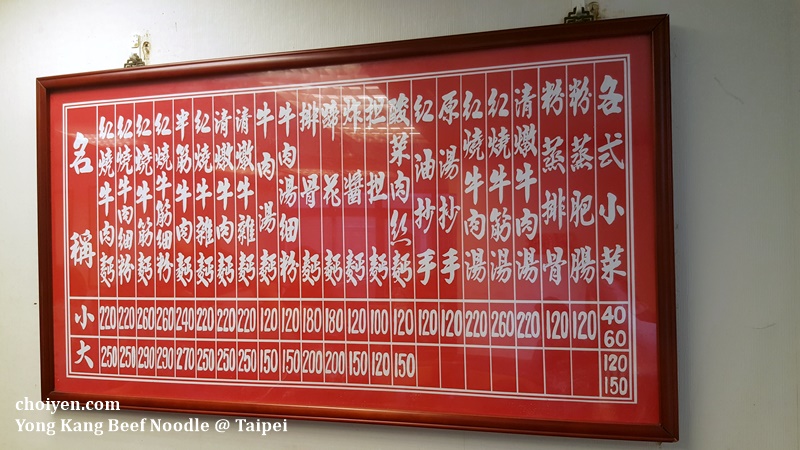 名稱 小 大
紅燒牛肉麵 220 250
紅燒牛肉細粉 220 250
紅燒牛筋麵 260 290
紅燒牛筋細粉 260 290
半筋半肉麵 240 270
紅燒牛雜麵 220 250
清燉牛肉麵 220 250
清燉牛雜麵 220 250
牛肉湯麵 120 150
牛肉湯細粉 120 150
排骨麵 180 200
蹄花麵 180 200
炸醬麵 120 150
担担麵 100 120
酸菜肉絲麵 120 150
紅油抄手 120
原湯抄手 120
紅燒牛肉湯 220
紅燒牛筋湯 260
清燉牛肉湯 220
粉蒸排骨 120
粉蒸肥腸 120
各式小菜 40 60 120 150
choiyen.com
Yong Kang Beef Noodle @ Taipei